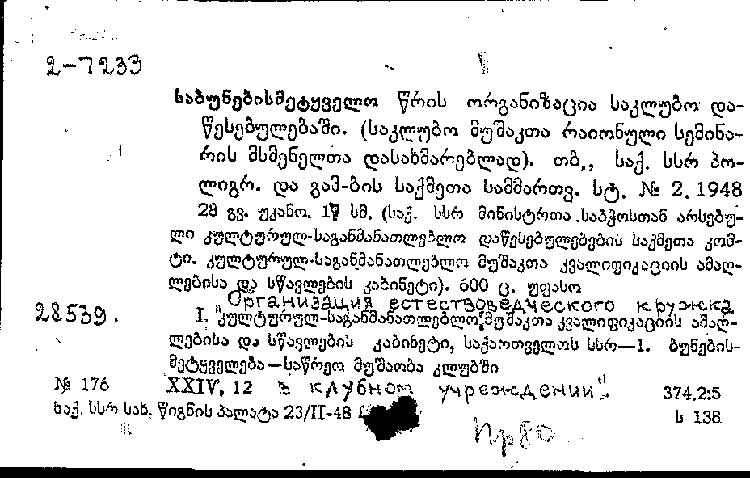 2-7233
საბუნებისმეტყველო წრის ორგანიზაცია საკლუბო და-
წესებულებაში. (საკლუბო მუშაკთა რაიონული სემინა-
რის მსმენელთა დასახმარებლად). თბ., საქ. სსრ პო-
ლიგრ. და გამ-ბის საქმეთა სამმართვ. სტ. № 2. 1948
28 გვ. უკანო. 17 სმ. (საქ. სსრ მინისტრთა საბჭოსთან არსებუ-
ლი კულტურულ-საგანმანათლებლო დაწესებულებების საქმეთა კომ-
ტი. კულტურულ-საგანმანათლებლო მუშაკთა კვალიფიკაციის ამაღ-
ლებისა და სწავლების კაბინეტი). 600 ც. უფასო
"Организация естествоведческого кружка
28539. I. კულტურულ-საგანმანათლებლო მუშაკთა კვალიფიკაციის ამაღ-
ლებისა და სწავლების კაბინეტი, საქართველოს სსრ—1. ბუნების-
მეტყველება—საწრეო მუშაობა კლუბში
№ 176 XXIV, 12 в клубном учреждении". 374.2:5
საქ. სსრ სახ. წიგნის პალატა 23/II-48 ს 138